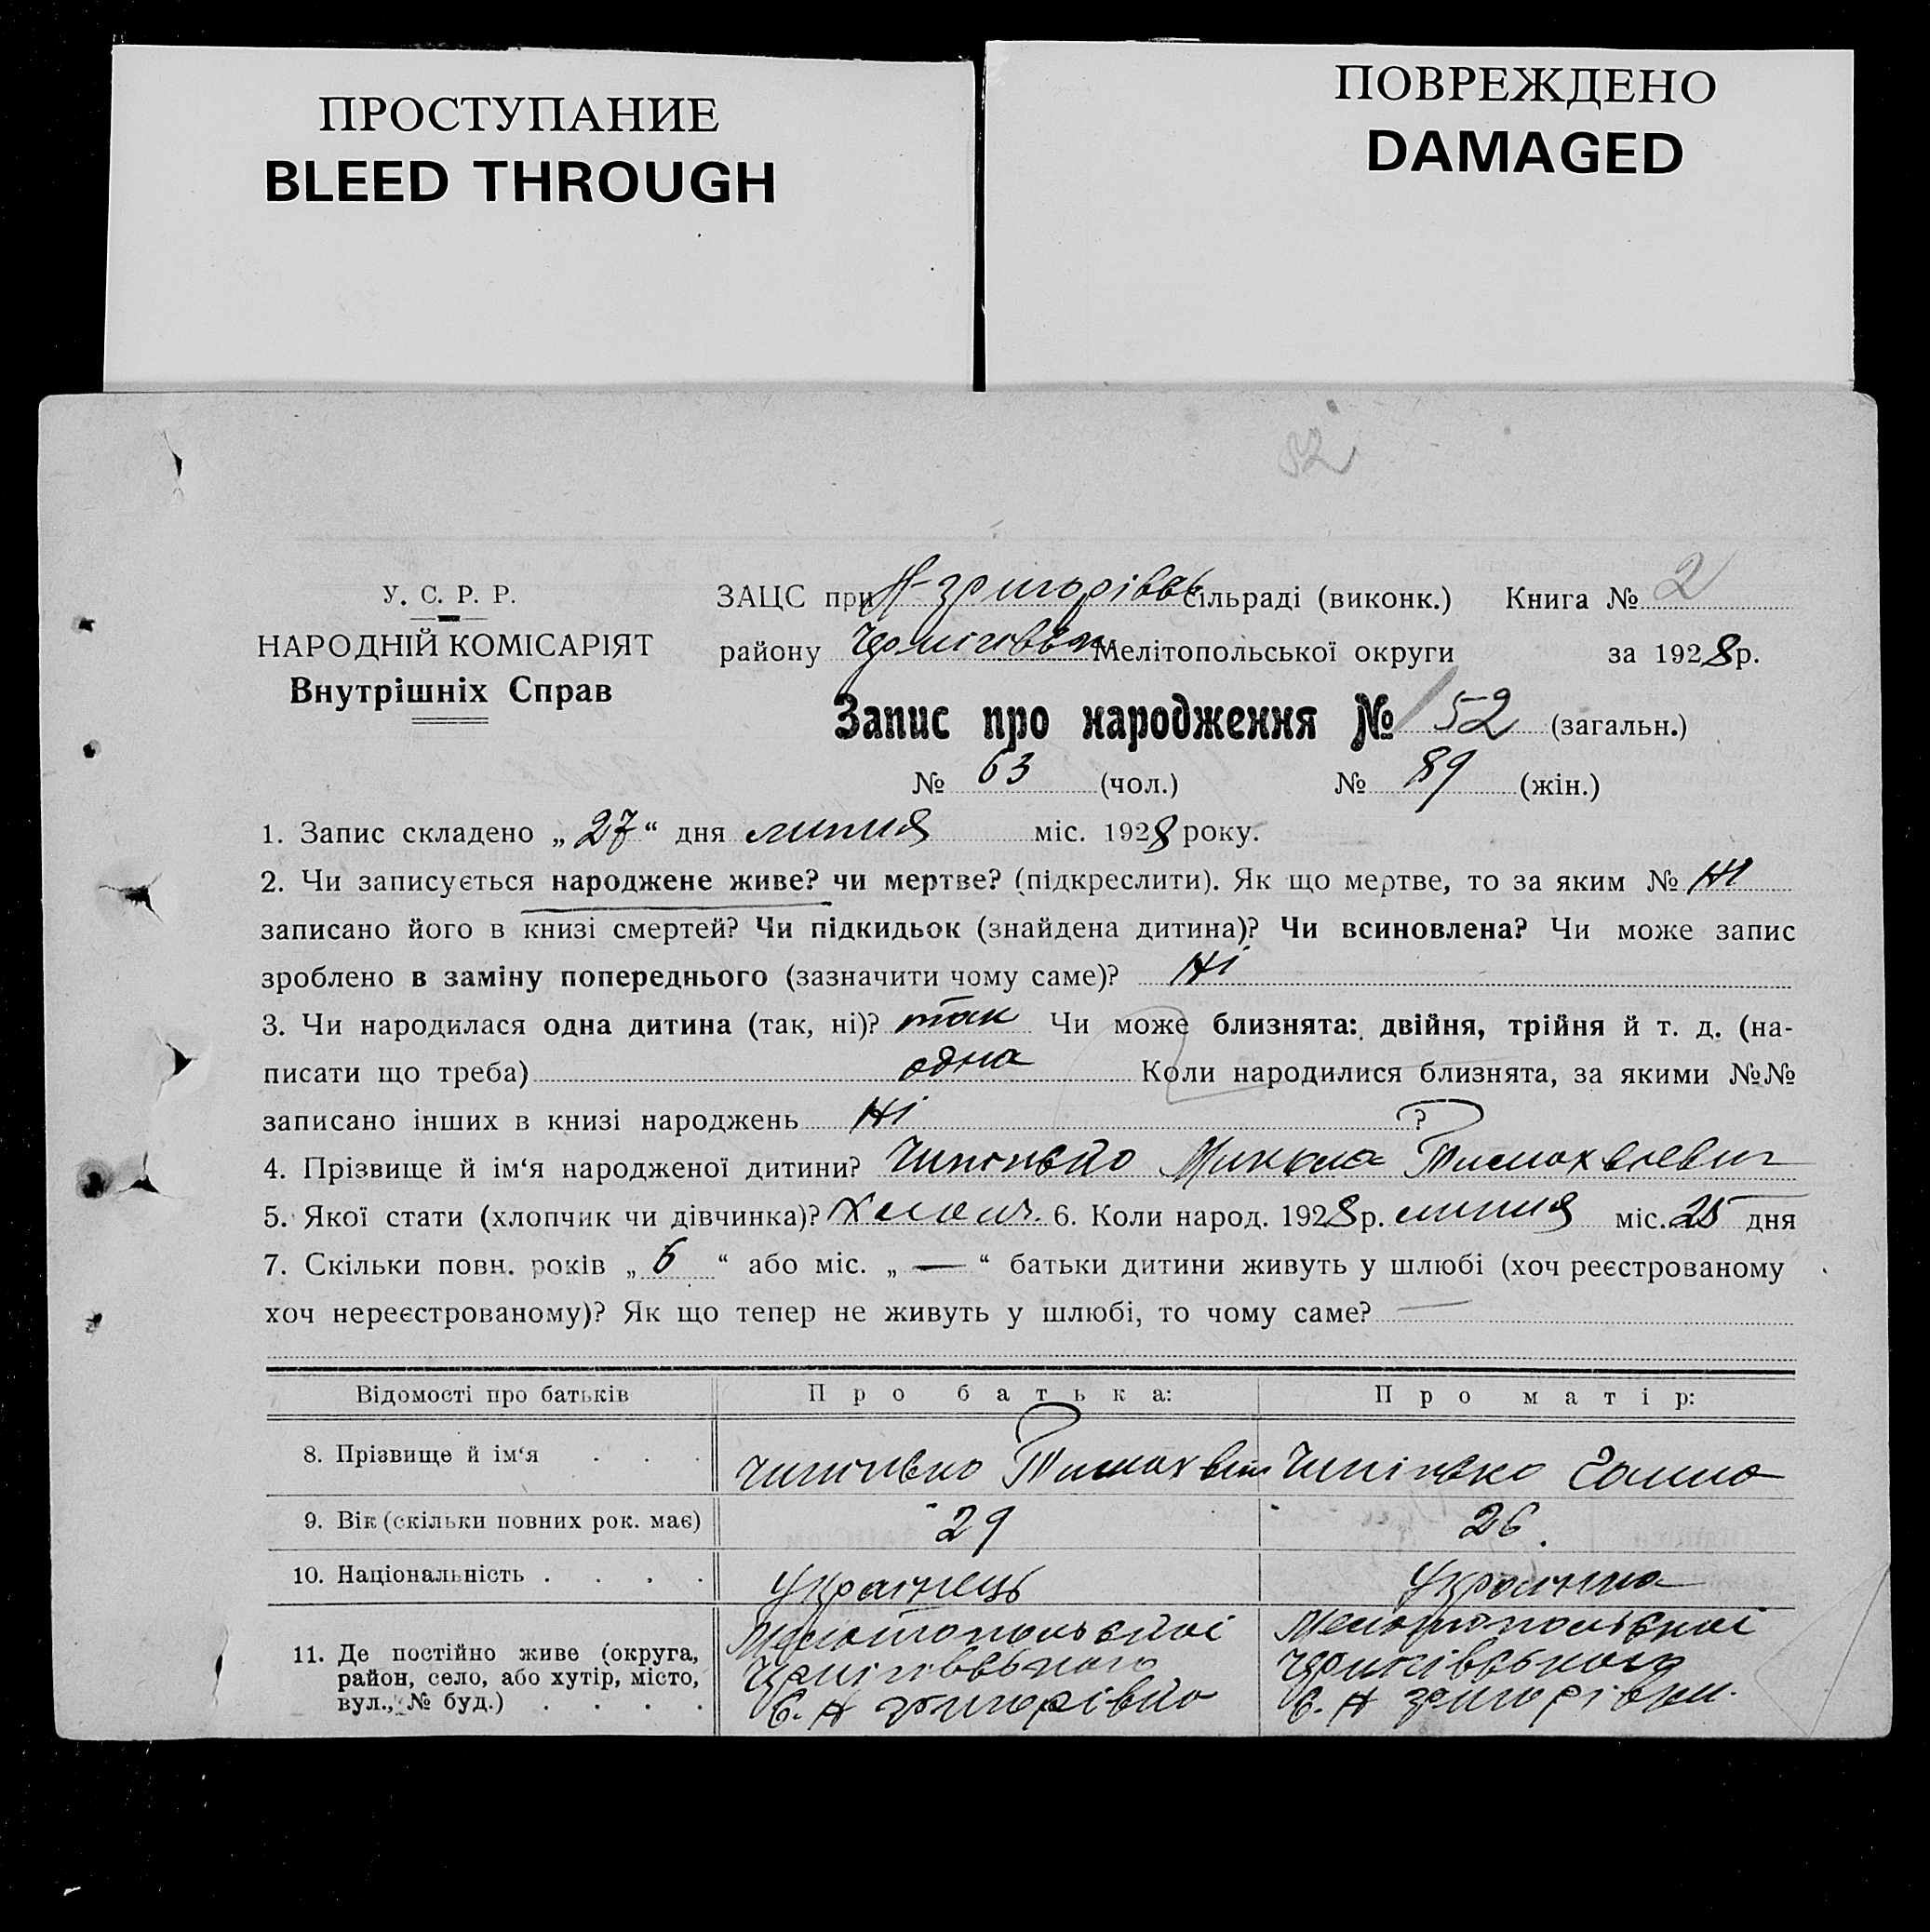 ПРОСТУПАНИЕ
BLEED THROUGH
ПОВРЕЖДЕНО
DAMAGED
52
У. С. Р. Р.
НАРОДНІЙ КОМІСАРІЯТ
Внутрішніх Справ
ЗАЦС при Н-григорівсь сільраді (виконк.) Книга № 2
району Мелітопольської округи за 1928р.
Запис про народження № 152 (загальн.)
№ 63 (чол.) № 89 (жін.)
1. Запис складено „ 27 “ дня липня міс. 1928 року.
2. Чи записується народжене живе? чи мертве? (підкреслити). Як що мертве, то за яким № Ні
записано його в книзі смертей? Чи підкидьок (знайдена дитина)? Чи всиновлена? Чи може запис
зроблено в заміну попереднього (зазначити чому саме)? Ні
3. Чи народилася одна дитина (так, ні)? так Чи може близнята: двійня, трійня й т. д. (на-
писати що треба) одна Коли народилися близнята, за якими №№
записано інших в книзі народжень Ні ?
4. Прізвище й ім‘я народженої дитини? Микола
5. Якої стати (хлопчик чи дівчинка)? Хлопч. 6. Коли народ. 1928р. липня міс. 25 дня
7. Скільки повн. років „ 6 “ або міс. „ — “ батьки дитини живуть у шлюбі (хоч реєстрованому
хоч нереєстрованому)? Як що тепер не живуть у шлюбі, то чому саме? —
Відомості про батьків Про батька: Про матір:
8. Прізвище й ім‘я . . . Ганна
9. Вік (скільки повних рок. має) 29 26.
10. Національність . . . . Українець Українка
11. Де постійно живе (округа, Мелітопольської Мелітопольської
район, село, або хутір, місто, Чернігівського Чернігівського
вул., № буд.) . . . . С. Н григорівка С. Н григорівки.